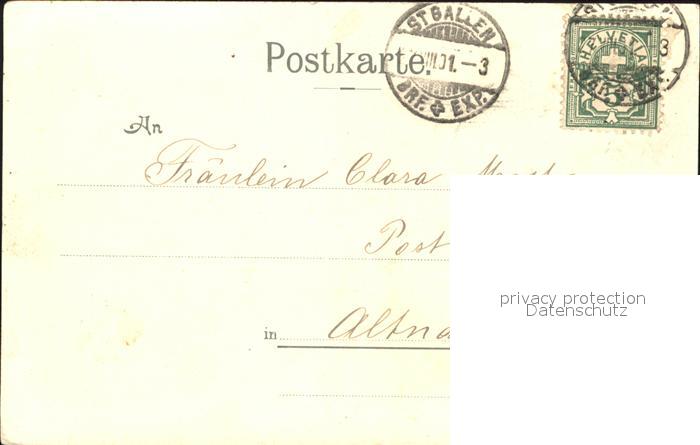 ST. GALLEN
Postkarte.
VIII.01.–3
BRF. EXP.
HELVETIA
3
EXP.
5
An
Fräulein Clara
Post
privacy protection
Datenschutz
in Altna